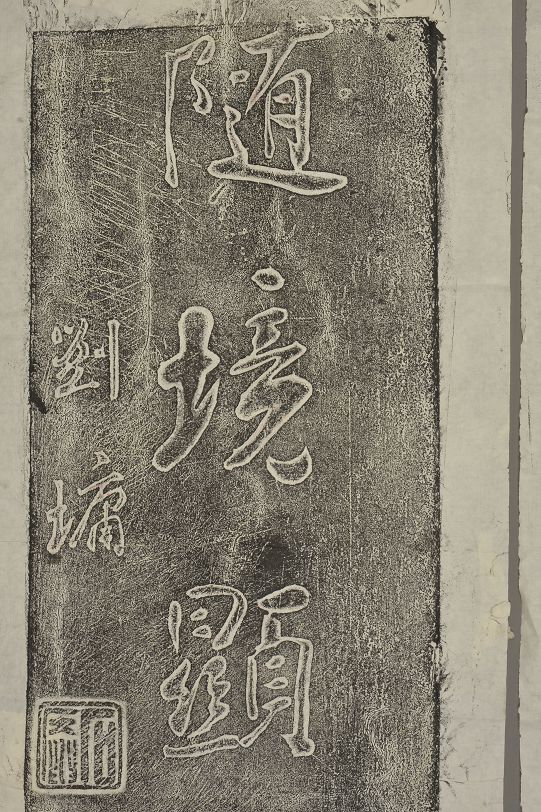 随境顯
劉墉